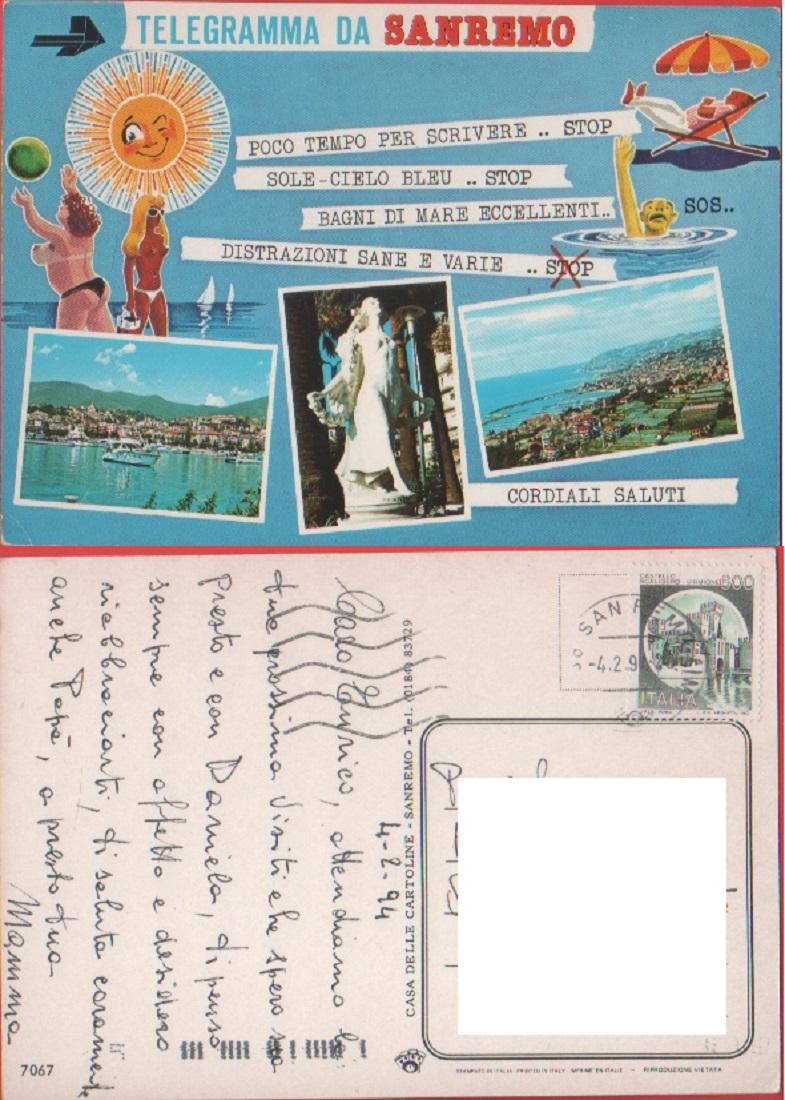 TELEGRAMMA DA SANREMO
POCO TEMPO PER SCRIVERE .. STOP
SOLE-CIELO BLEU .. STOP
BAGNI DI MARE ECCELLENTI..
SOS..
DISTRAZIONI SANE E VARIE .. STOP
CORDIALI SALUTI
4-2-94
Caro Enrico, attendiamo la
tua prossima visita che spero sia
presto e con Daniela, ti penso
sempre con affetto e desidero
riabbracciarti, ti saluta caramente
anche Papà, a presto tua
Mamma
CASA DELLE CARTOLINE - SANREMO - Tel. (0184) 83729
600
ITALIA
SAN REMO
-4.2.9
7067
STAMPATO IN ITALIA PRINTED IN ITALY IMPRIME EN ITALIE - RIPRODUZIONE VIETATA